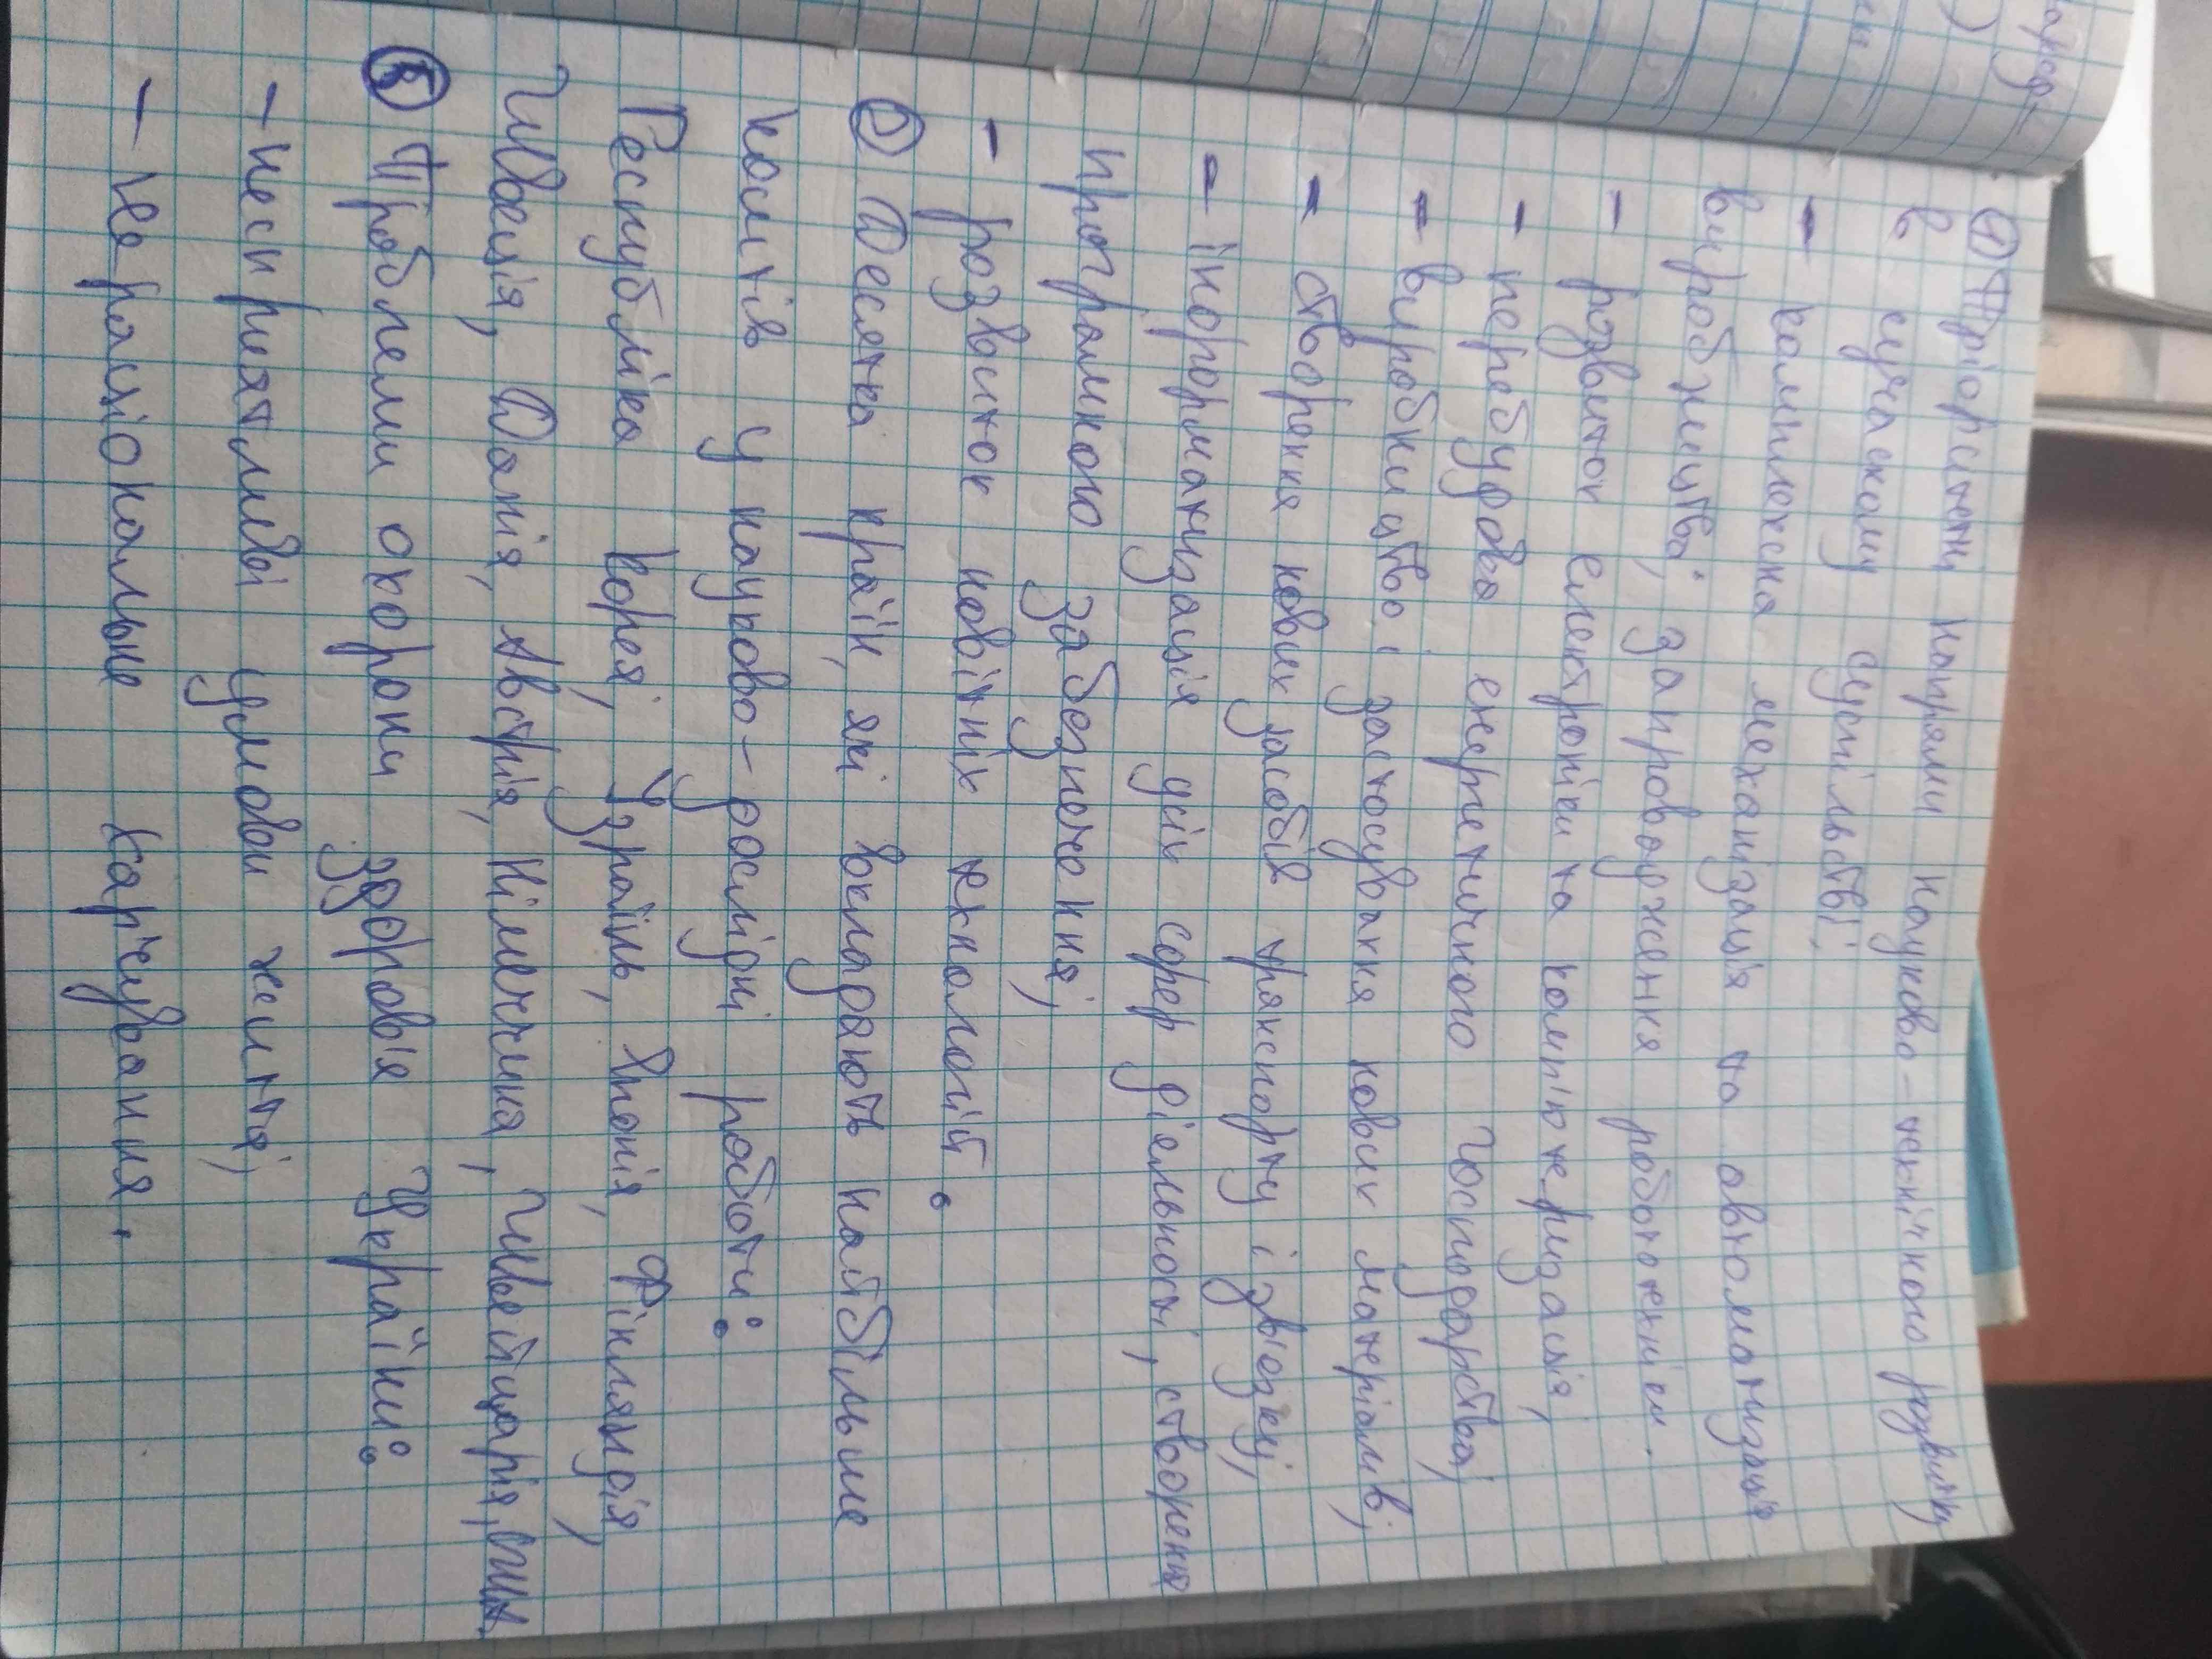 ① Пріорітетні напрями науково-технічного розвитку
в сучаскому суспільстві:
- комплексна механізація та автоматизація
виробництва, запровадження робототехніки.
- розвиток електроніки та комп'ютеризація;
- перебудова енергетичного господарства;
- виробництво і застосування нових матеріалів;
- створення нових засобів транспорту і зв'язку;
- інформатизація усіх сфер діяльності, створення
програмного забезпечення;
- розвиток новітніх технологій.
② Десятка країн, які вкладають найбільше
коштів у науково-дослідні роботи:
Республіка Корея, Ізраїль, Японія, Фінляндія,
Швеція, Данія, Австрія, Німеччина, Швейцарія, США
Проблеми охорони здоров'я України:
- несприятливі умови життя;
- нераціональне харчування.